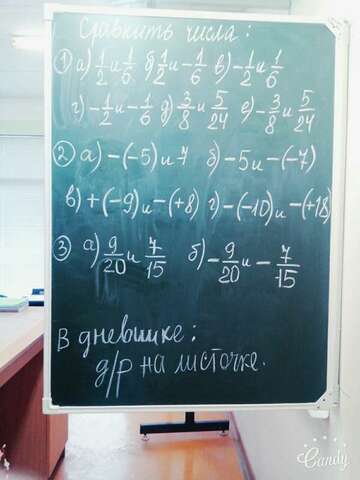 Сравнить числа:
① а) 1/2 и 1/6 б) 1/2 и -1/6 в) -1/2 и 1/6
г) -1/2 и -1/6 д) 3/8 и 5/24 е) -3/8 и 5/24
② а) -(-5) и 7 б) -5 и -(-7)
в) +(-9) и -(+8) г) -(-10) и -(+18)
③ а) 9/20 и 7/15 б) -9/20 и -7/15
В дневнике:
д/р на листочке.
Candy